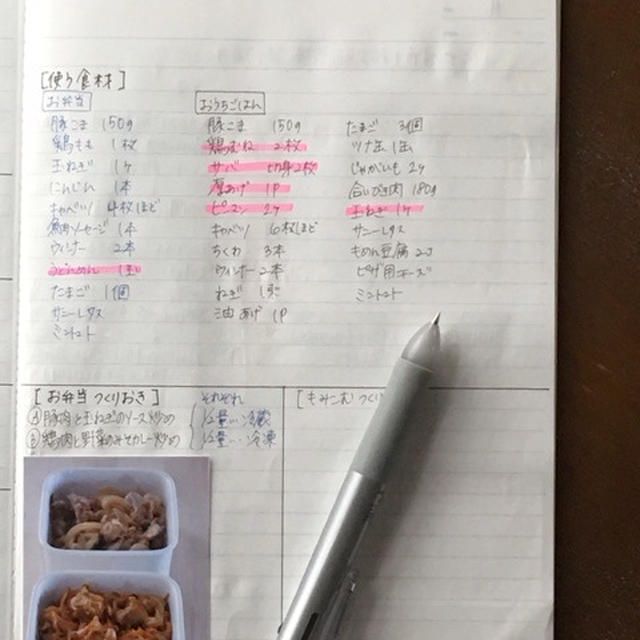 [使う食材]
お弁当
豚こま 150g
鶏もも 1枚
玉ねぎ 1ヶ
にんじん 1本
キャベツ 4枚ほど
魚肉ソーセージ 1本
ウィンナー 2本
うどんめん 1玉
たまご 1個
サニーレタス
ミニトマト
おうちごはん
豚こま 150g
鶏むね 2枚
サバ 切身2枚
厚あげ 1P
ピーマン 2ヶ
キャベツ 6枚ほど
ちくわ 3本
ウィンナー 2本
ねぎ 1束
油あげ 1P
たまご 3個
ツナ缶 1缶
じゃがいも 2ヶ
合いびき肉 180g
玉ねぎ 1ヶ
サニーレタス
もめん豆腐 2コ
ピザ用チーズ
ミニトマト
[お弁当 つくりおき] それぞれ
Ⓐ 豚肉と玉ねぎのソース炒め 1/2量…冷蔵
Ⓑ 鶏肉と野菜のみそカレー炒め 1/2量…冷凍
[もみこむ つくり